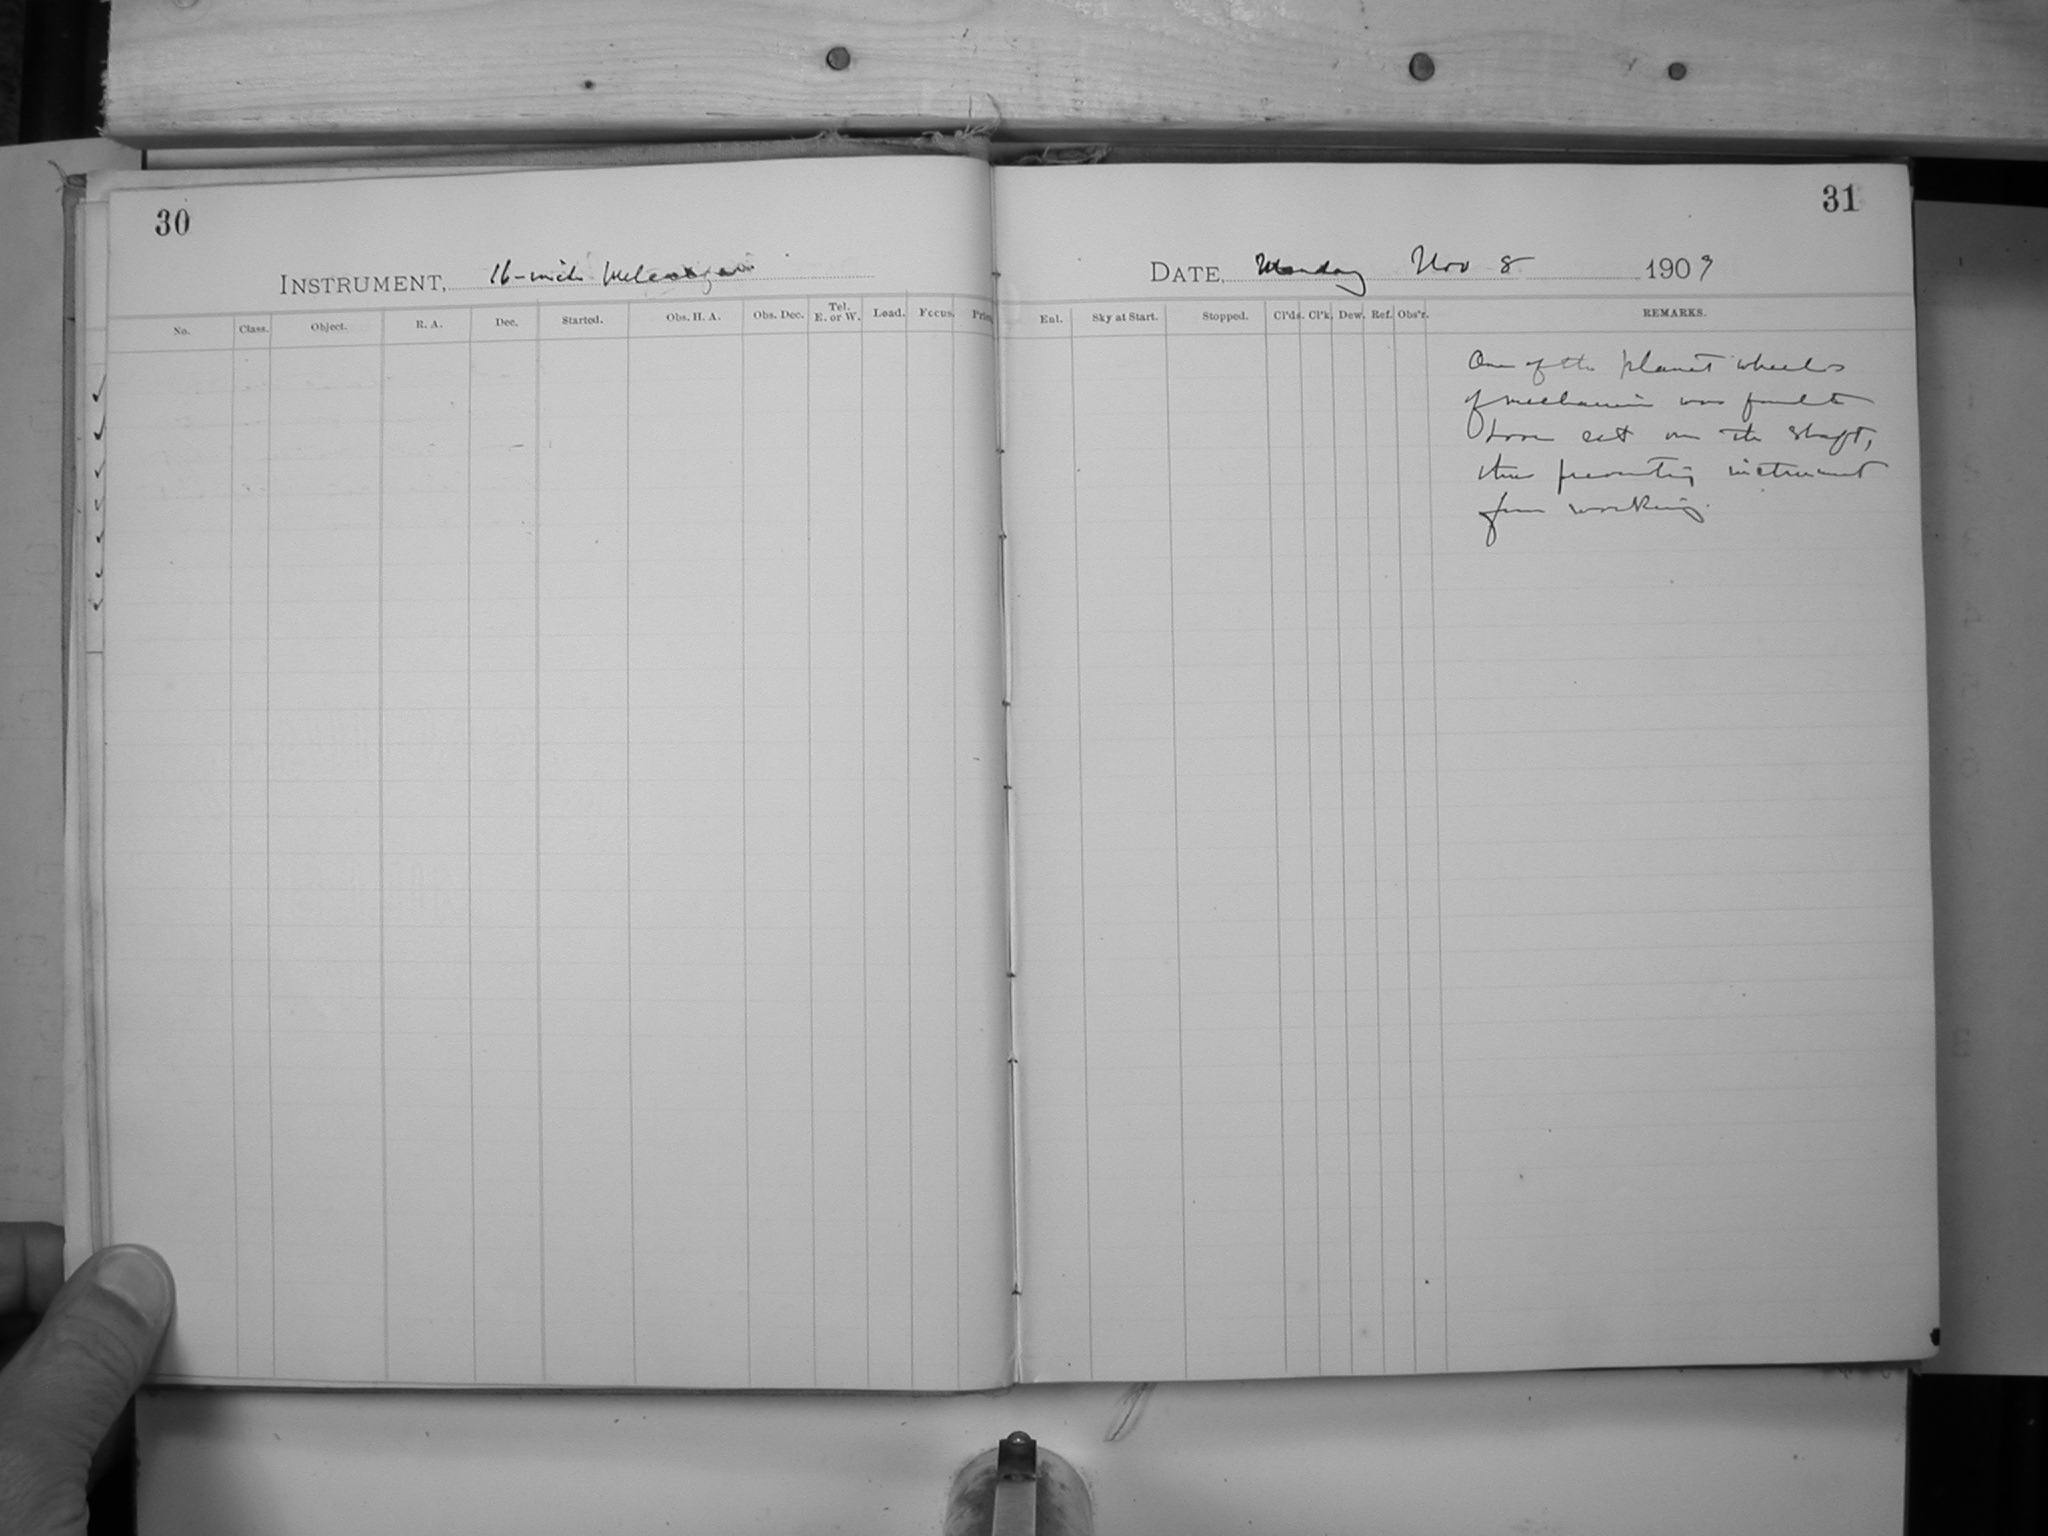 30
INSTRUMENT, 16-inch Metcalf
No. Class. Object. R. A. Dec. Started. Obs. H. A. Obs. Dec. Tel. E. or W. Load. Focus.
31
DATE, Monday Nov 8 1909
Enl. Sky at Start. Stopped. Cl'ds. Cl'k. Dew. Ref. Obs'r. REMARKS.
One of the planet wheels
of mechanism was found to
have set on the shaft,
thus preventing instrument
from working.